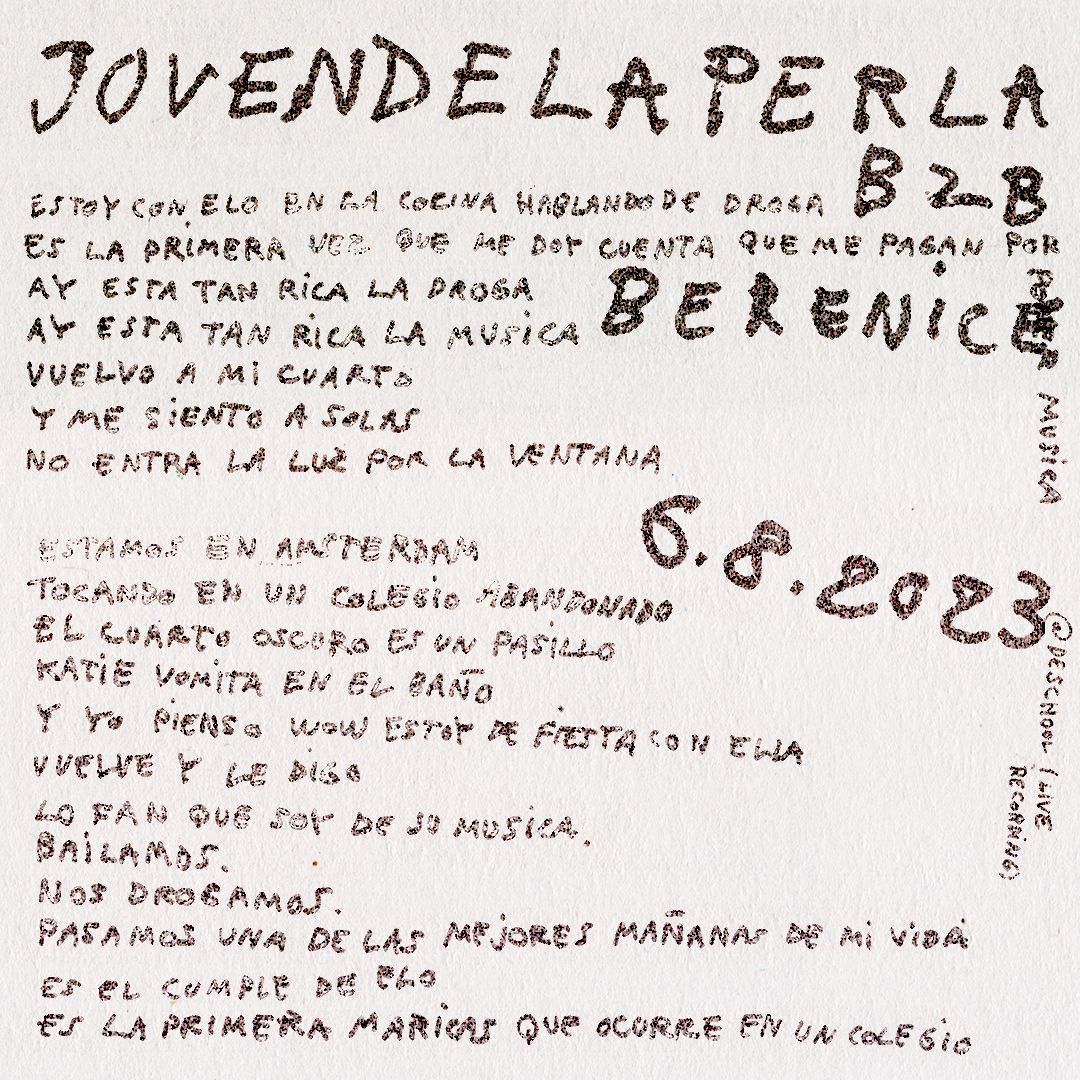 JOVENDELAPERLA
B2B
BERENICE
6.8.2023
@DESCHOOL (LIVE
RECORDING)
ESTOY CON ELO EN LA COCINA HABLANDO DE DROGA
ES LA PRIMERA VEZ QUE ME DOY CUENTA QUE ME PAGAN POR
PONER MUSICA
AY ESTA TAN RICA LA DROGA
AY ESTA TAN RICA LA MUSICA
VUELVO A MI CUARTO
Y ME SIENTO A SOLAS
NO ENTRA LA LUZ POR LA VENTANA
ESTAMOS EN AMSTERDAM
TOCANDO EN UN COLEGIO ABANDONADO
EL CUARTO OSCURO ES UN PASILLO
KATIE VOMITA EN EL BAÑO
Y YO PIENSO WOW ESTOY DE FIESTA CON ELLA
VUELVE Y LE DIGO
LO FAN QUE SOY DE SU MUSICA.
BAILAMOS.
NOS DROGAMOS.
PASAMOS UNA DE LAS MEJORES MAÑANAS DE MI VIDA
ES EL CUMPLE DE ELO
ES LA PRIMERA MARICAS QUE OCURRE EN UN COLEGIO